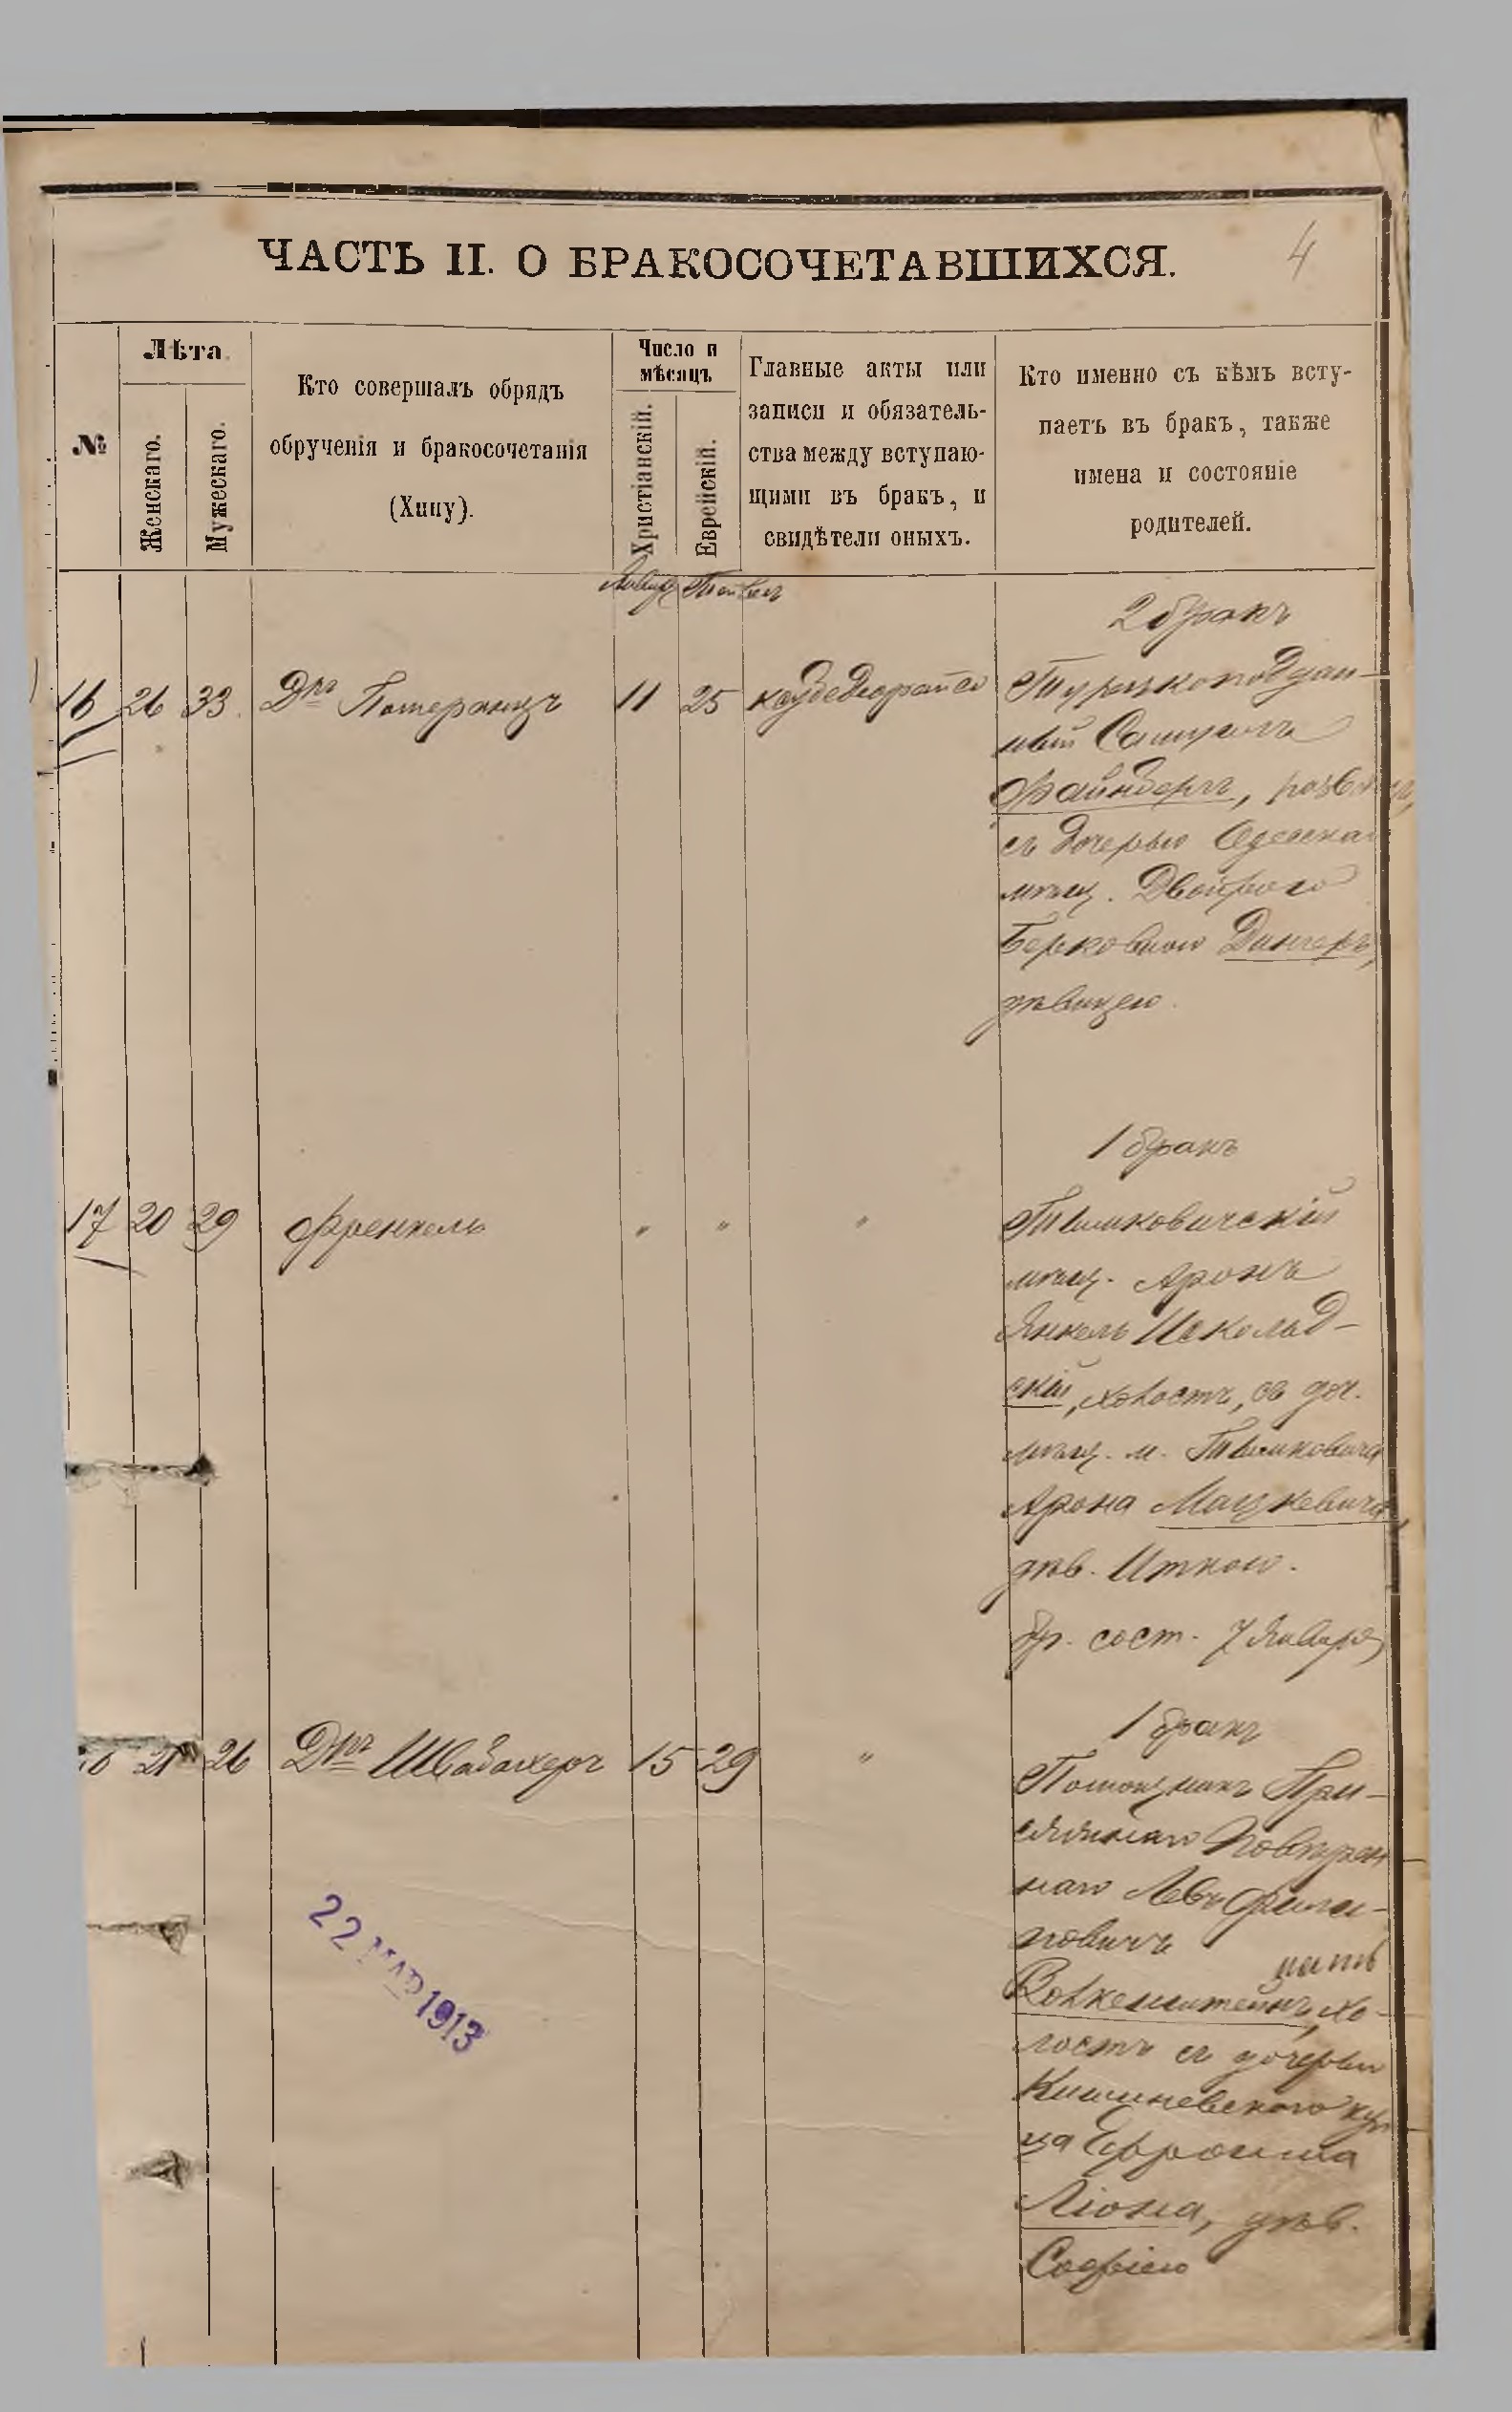 4
ЧАСТЬ II. О БРАКОСОЧЕТАВШИХСЯ.
№
Лѣта.
Женскаго.
Мужескаго.
Кто совершалъ обрядъ
обрученія и бракосочетанія
(Хипу).
Число и
мѣсяцъ
Христіанскій.
Еврейскій.
Главные акты или
записи и обязатель-
ства между вступаю-
щими въ бракъ, и
свидѣтели оныхъ.
Кто именно съ кѣмъ всту-
паетъ въ бракъ, также
имена и состояніе
родителей.
Январь
2 бракъ
16 26 33 Д-ръ Померанцъ 11 25 Турецкоподдан-
ный Самуилъ
Файнбергъ,
съ дочерью Одесскаго
мѣщ. Двойрою
Берковною Дингеръ,
дѣвицею.
1 бракъ
17 20 29 Френкель " " " Тимковичскій
мѣщ. Аронъ
Янкель Искольд-
скій, холостъ, съ доч.
мѣщ. м. Тимковича
Арона Мацкевича,
дѣв. Иткою.
бр. сост. 7 Января
1 бракъ
21 26 Д-ръ Швабахеръ 15 29 " Помощникъ При-
сяжнаго Повѣрен
наго Левъ Фили-
повичъ
Волкенштейнъ, хо-
лостъ съ дочерью
Кишиневскаго куп
ца Ефроима
Ліона, дѣв.
Софіею
22 МАР 1913